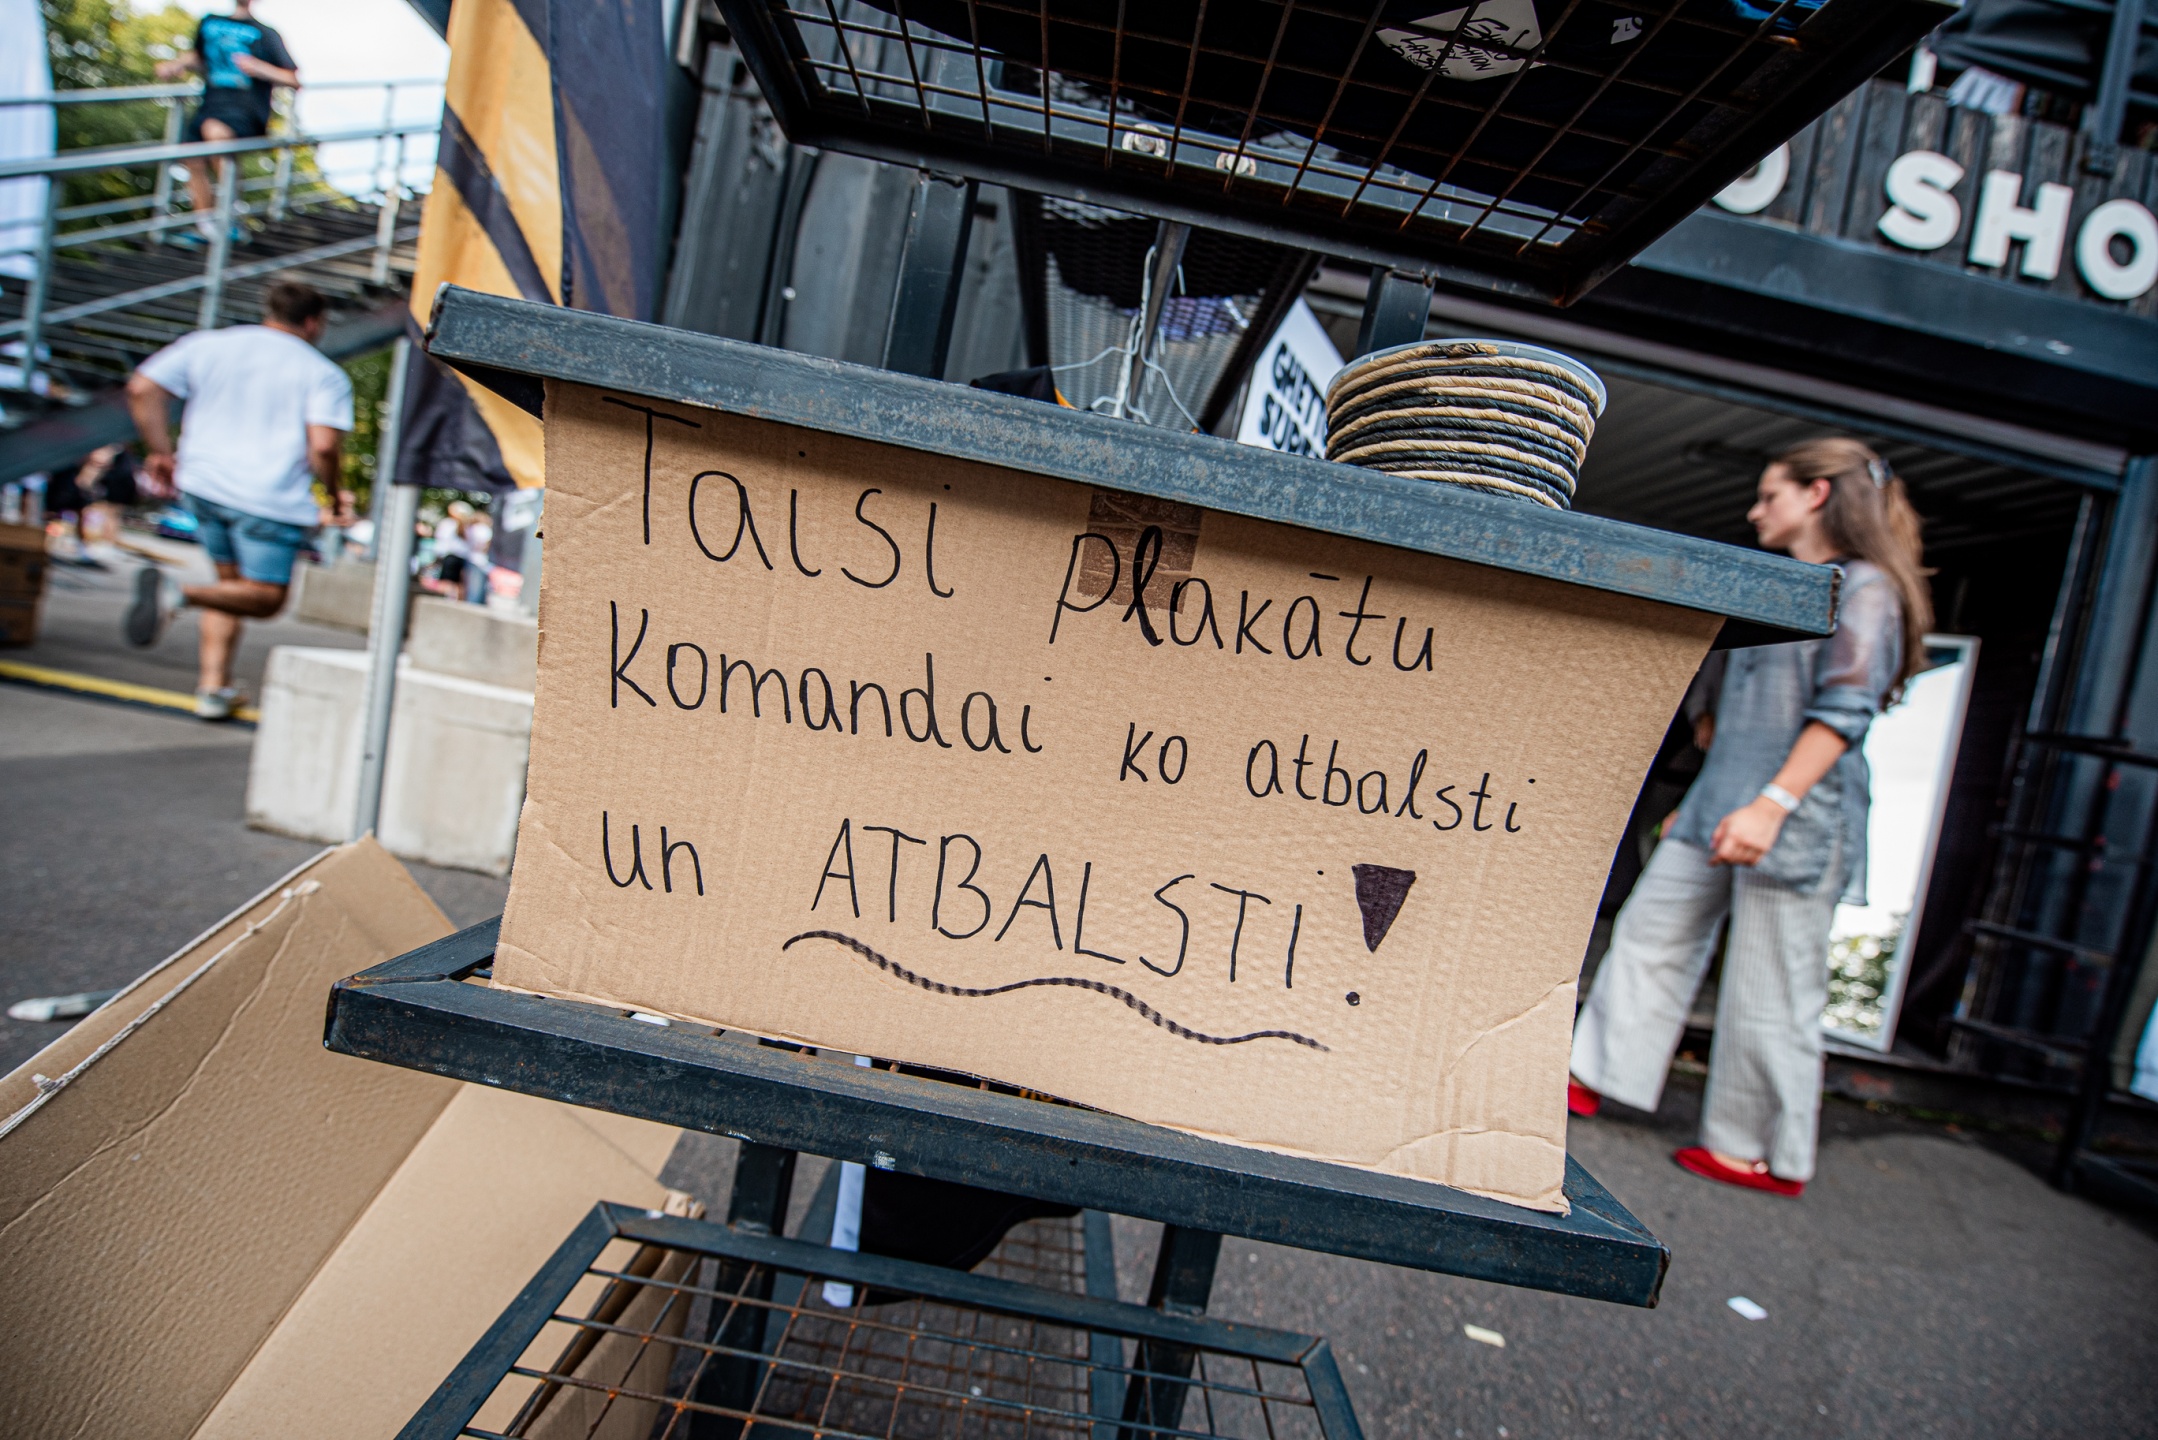 SHO
GHETT
Taisi plakātu
Komandai ko atbalsti
un ATBALSTi!